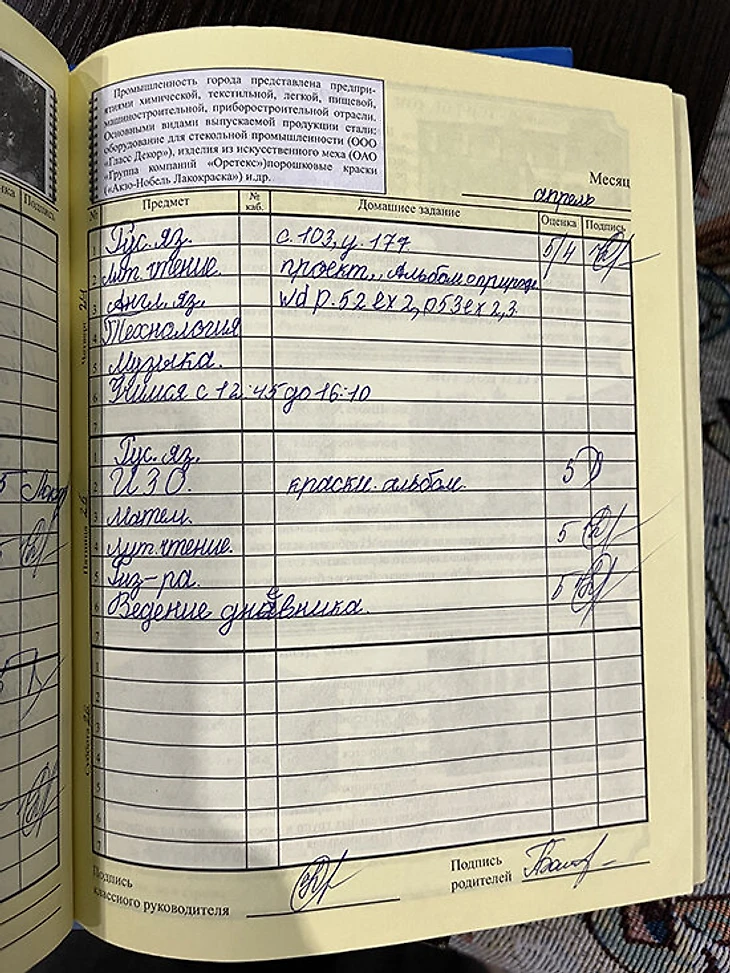 Промышленность города представлена предпри-
ятиями химической, текстильной, легкой, пищевой,
машиностроительной, приборостроительной отрасли.
Основными видами выпускаемой продукции стали:
оборудование для стекольной промышленности (ООО
«Гласс Декор»), изделия из искусственного меха (ОАО
«Группа компаний «Оретекс»)порошковые краски
(«Акзо-Нобель Лакокраска») и.др.
Месяц апрель
№ Предмет № каб. Домашнее задание Оценка Подпись
1 Рус. яз. с. 103, у. 177 5/4
2 Лит. чтение проект. Альбом о природе
3 Англ. яз. wd p.52 ex 2, p53 ex 2,3.
4 Технология
5 Музыка.
6 Учимся с 12:45 до 16:10
Пятница
1 Рус. яз.
2 ИЗО. краски. альбом. 5
3 Матем.
4 Лит. чтение. 5
5 Физ-ра. 5
6 Ведение дневника. 5
7
Суббота
1
2
3
4
5
6
7
Подпись
классного руководителя
Подпись
родителей